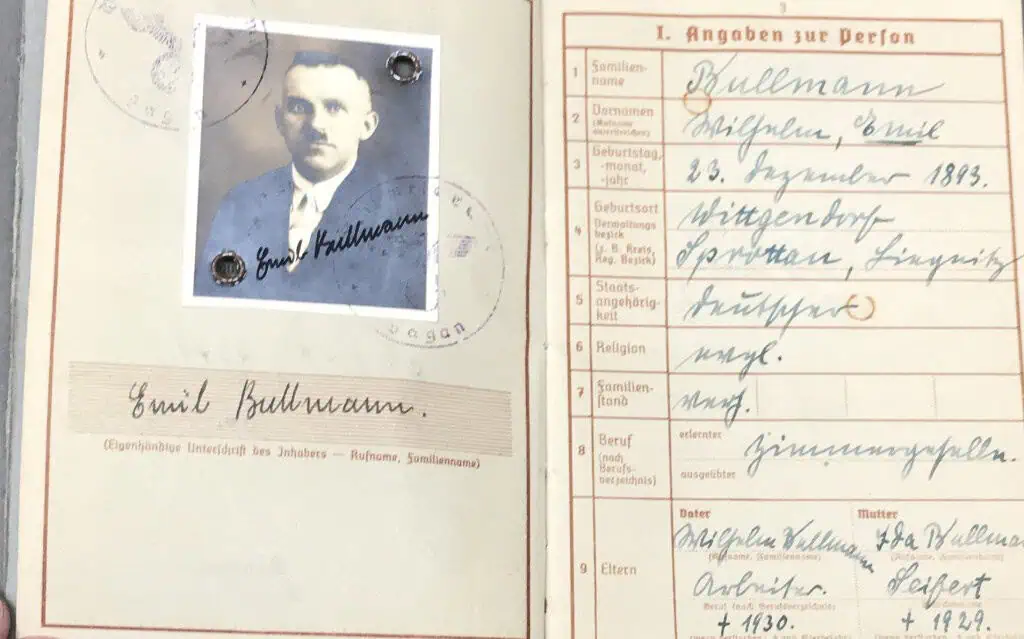 Emil Bullmann
Sagan
Emil Bullmann.
(Eigenhändige Unterschrift des Inhabers — Rufname, Familienname)
I. Angaben zur Person
1 Familien-
name
Bullmann
2 Vornamen
(Rufname
unterstreichen)
Wilhelm, Emil
3 Geburtstag,
-monat,
-jahr
23. Dezember 1893.
4 Geburtsort
Verwaltungs-
bezirk
(z. B. Kreis,
Reg. Bezirk)
Wittgendorf
Sprottau, Liegnitz
5 Staats-
angehörig-
keit
Deutscher
6 Religion
evgl.
7 Familien-
stand
verh.
8 Beruf
(nach
Berufs-
verzeichnis)
erlernter
Zimmergeselle.
ausgeübter
9 Eltern
Vater
Wilhelm Bullmann
(Rufname, Familienname)
Arbeiter.
Beruf (nach Berufsverzeichnis)
+ 1930.
Mutter
Ida Bullma
(Rufname, Familienname)
Seifert
+ 1929.